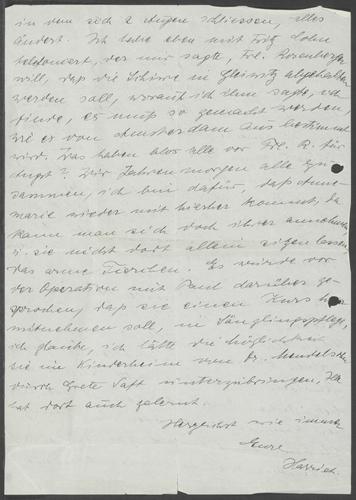 in dem sich 2 Augen schliessen, alles
ändert. Ich habe eben mit Fritz Cohn
telefoniert, der mir sagte, Frl. Rosenberg
will, daß die Schiwe in Gleiwitz abgehalten
werden soll, worauf ich ihm sagte, ich
finde, es muß so gemacht werden,
wie es von Amsterdam aus bestimmt
wird. Was haben blos alle vor Frl. R. für
Angst? Wir fahren morgen alle zu-
sammen, ich bin dafür, daß Anne-
marie wieder mit hierher kommt, da
kann man sich doch ihrer annehmen
u. sie nicht dort allein sitzen lassen,
das arme Tierchen. Es wurde vor
der Operation mit Paul darüber ge-
sprochen, daß sie einen Kurs hier
mitnehmen soll, in Säuglingspflege,
ich glaube, ich hätte die Möglichkeit
sie im Kinderheim von Dr. Mendelsohn
durch Grete Saft unterzubringen,
hat dort auch gelernt.
Herzlichst wie immer
Eure
Harriet.